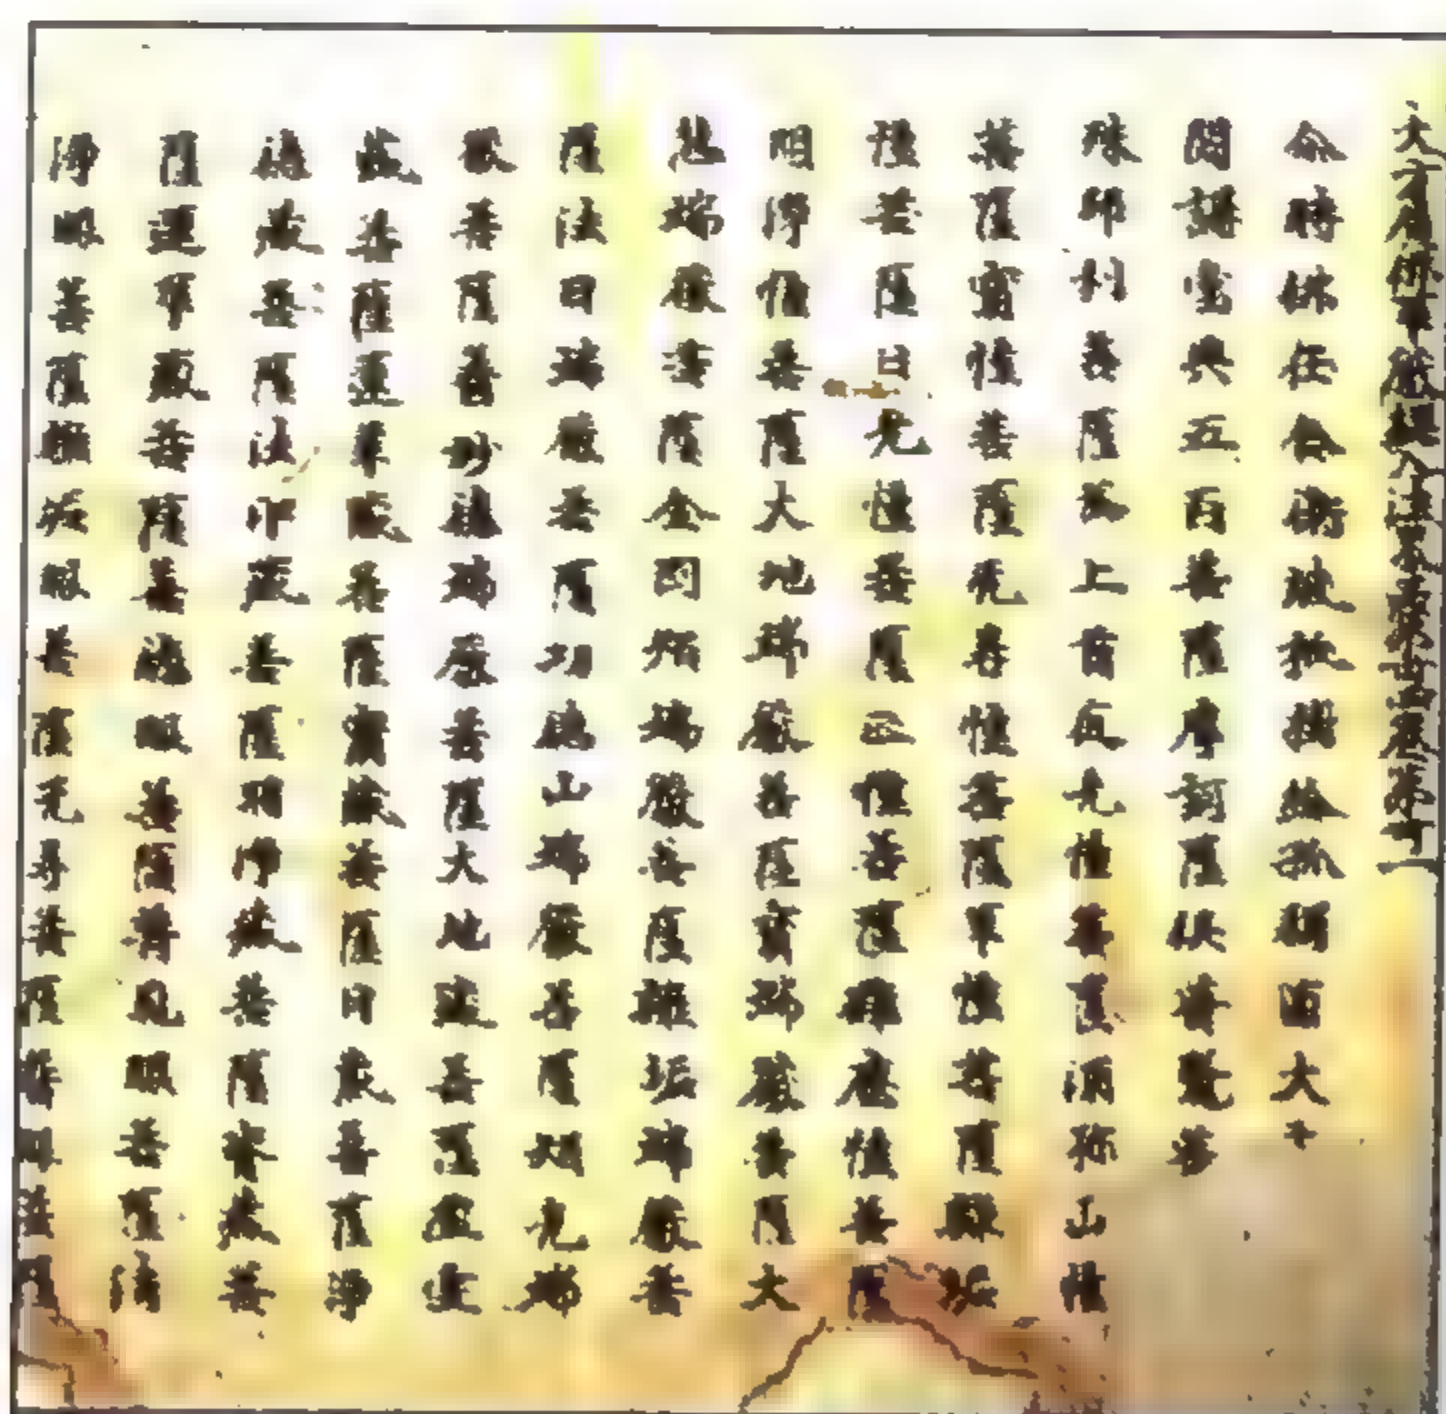 大方廣佛華嚴經入法界品
尒時佛在舍衛城祇樹給孤獨園大
閣講堂與五百菩薩摩訶薩俱普賢菩
殊師利菩薩為上首光幢菩薩須弥山幢
菩薩寶幢菩薩无㝵幢菩薩華幢菩薩離垢
幢菩薩日光幢菩薩正幢菩薩離塵幢菩薩
明淨幢菩薩大地端嚴菩薩寶端嚴菩薩大
慧端嚴菩薩金剛炎端嚴菩薩離垢端嚴菩
薩法日端嚴菩薩功德山端嚴菩薩炎光端
嚴菩薩普妙德端嚴菩薩大地藏菩薩虛空
藏菩薩蓮華藏菩薩寶藏菩薩日藏菩薩淨
德藏菩薩法印藏菩薩明淨藏菩薩齊藏菩
薩蓮華藏菩薩善眼菩薩普見眼菩薩清
淨眼菩薩離垢眼菩薩无㝵菩薩普眼菩薩